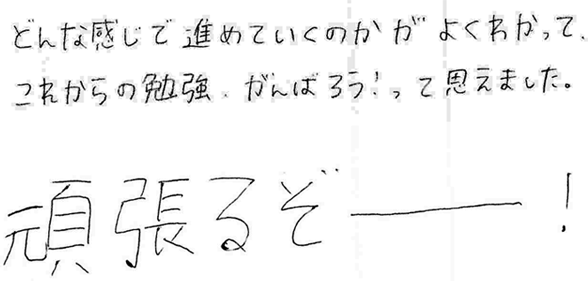 どんな感じで進めていくのかがよくわかって、
これからの勉強、がんばろう!って思えました。
頑張るぞー!